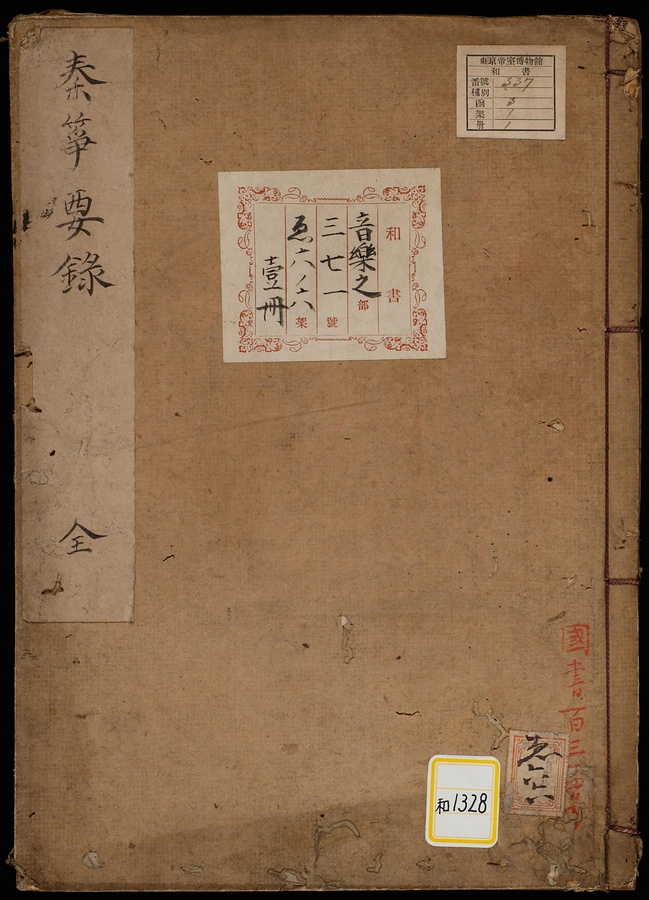 秦箏要錄
全
東京帝室博物館
和書
番號 337
種別
函 3
架 1
册 1
和書
音樂之部
三七一號
ゑ六ノ六架
壹冊
國書百三
ゑ六ノ六
和1328